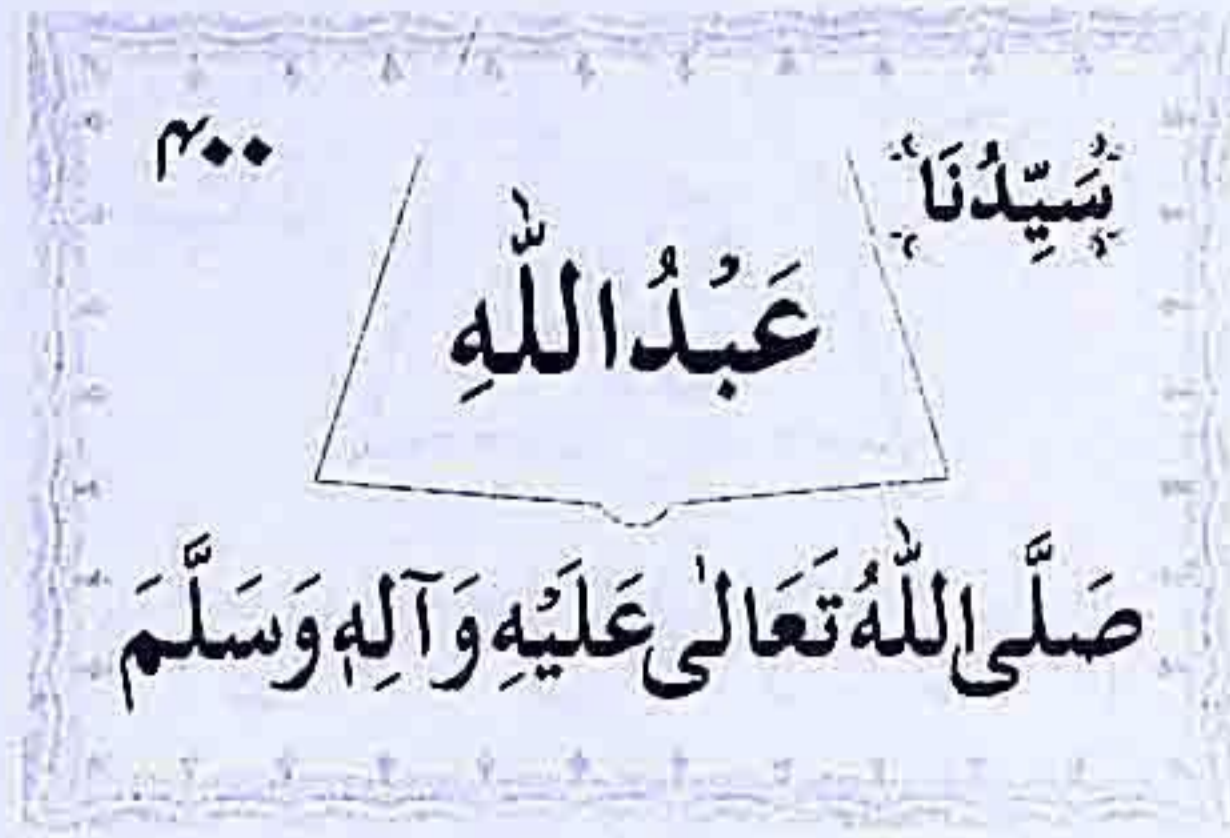 سَيِّدُنَا ۴۰۰
عَبْدُاللّٰهِ
صَلَّى اللّٰهُ تَعَالٰى عَلَيْهِ وَآلِهٖ وَسَلَّمَ